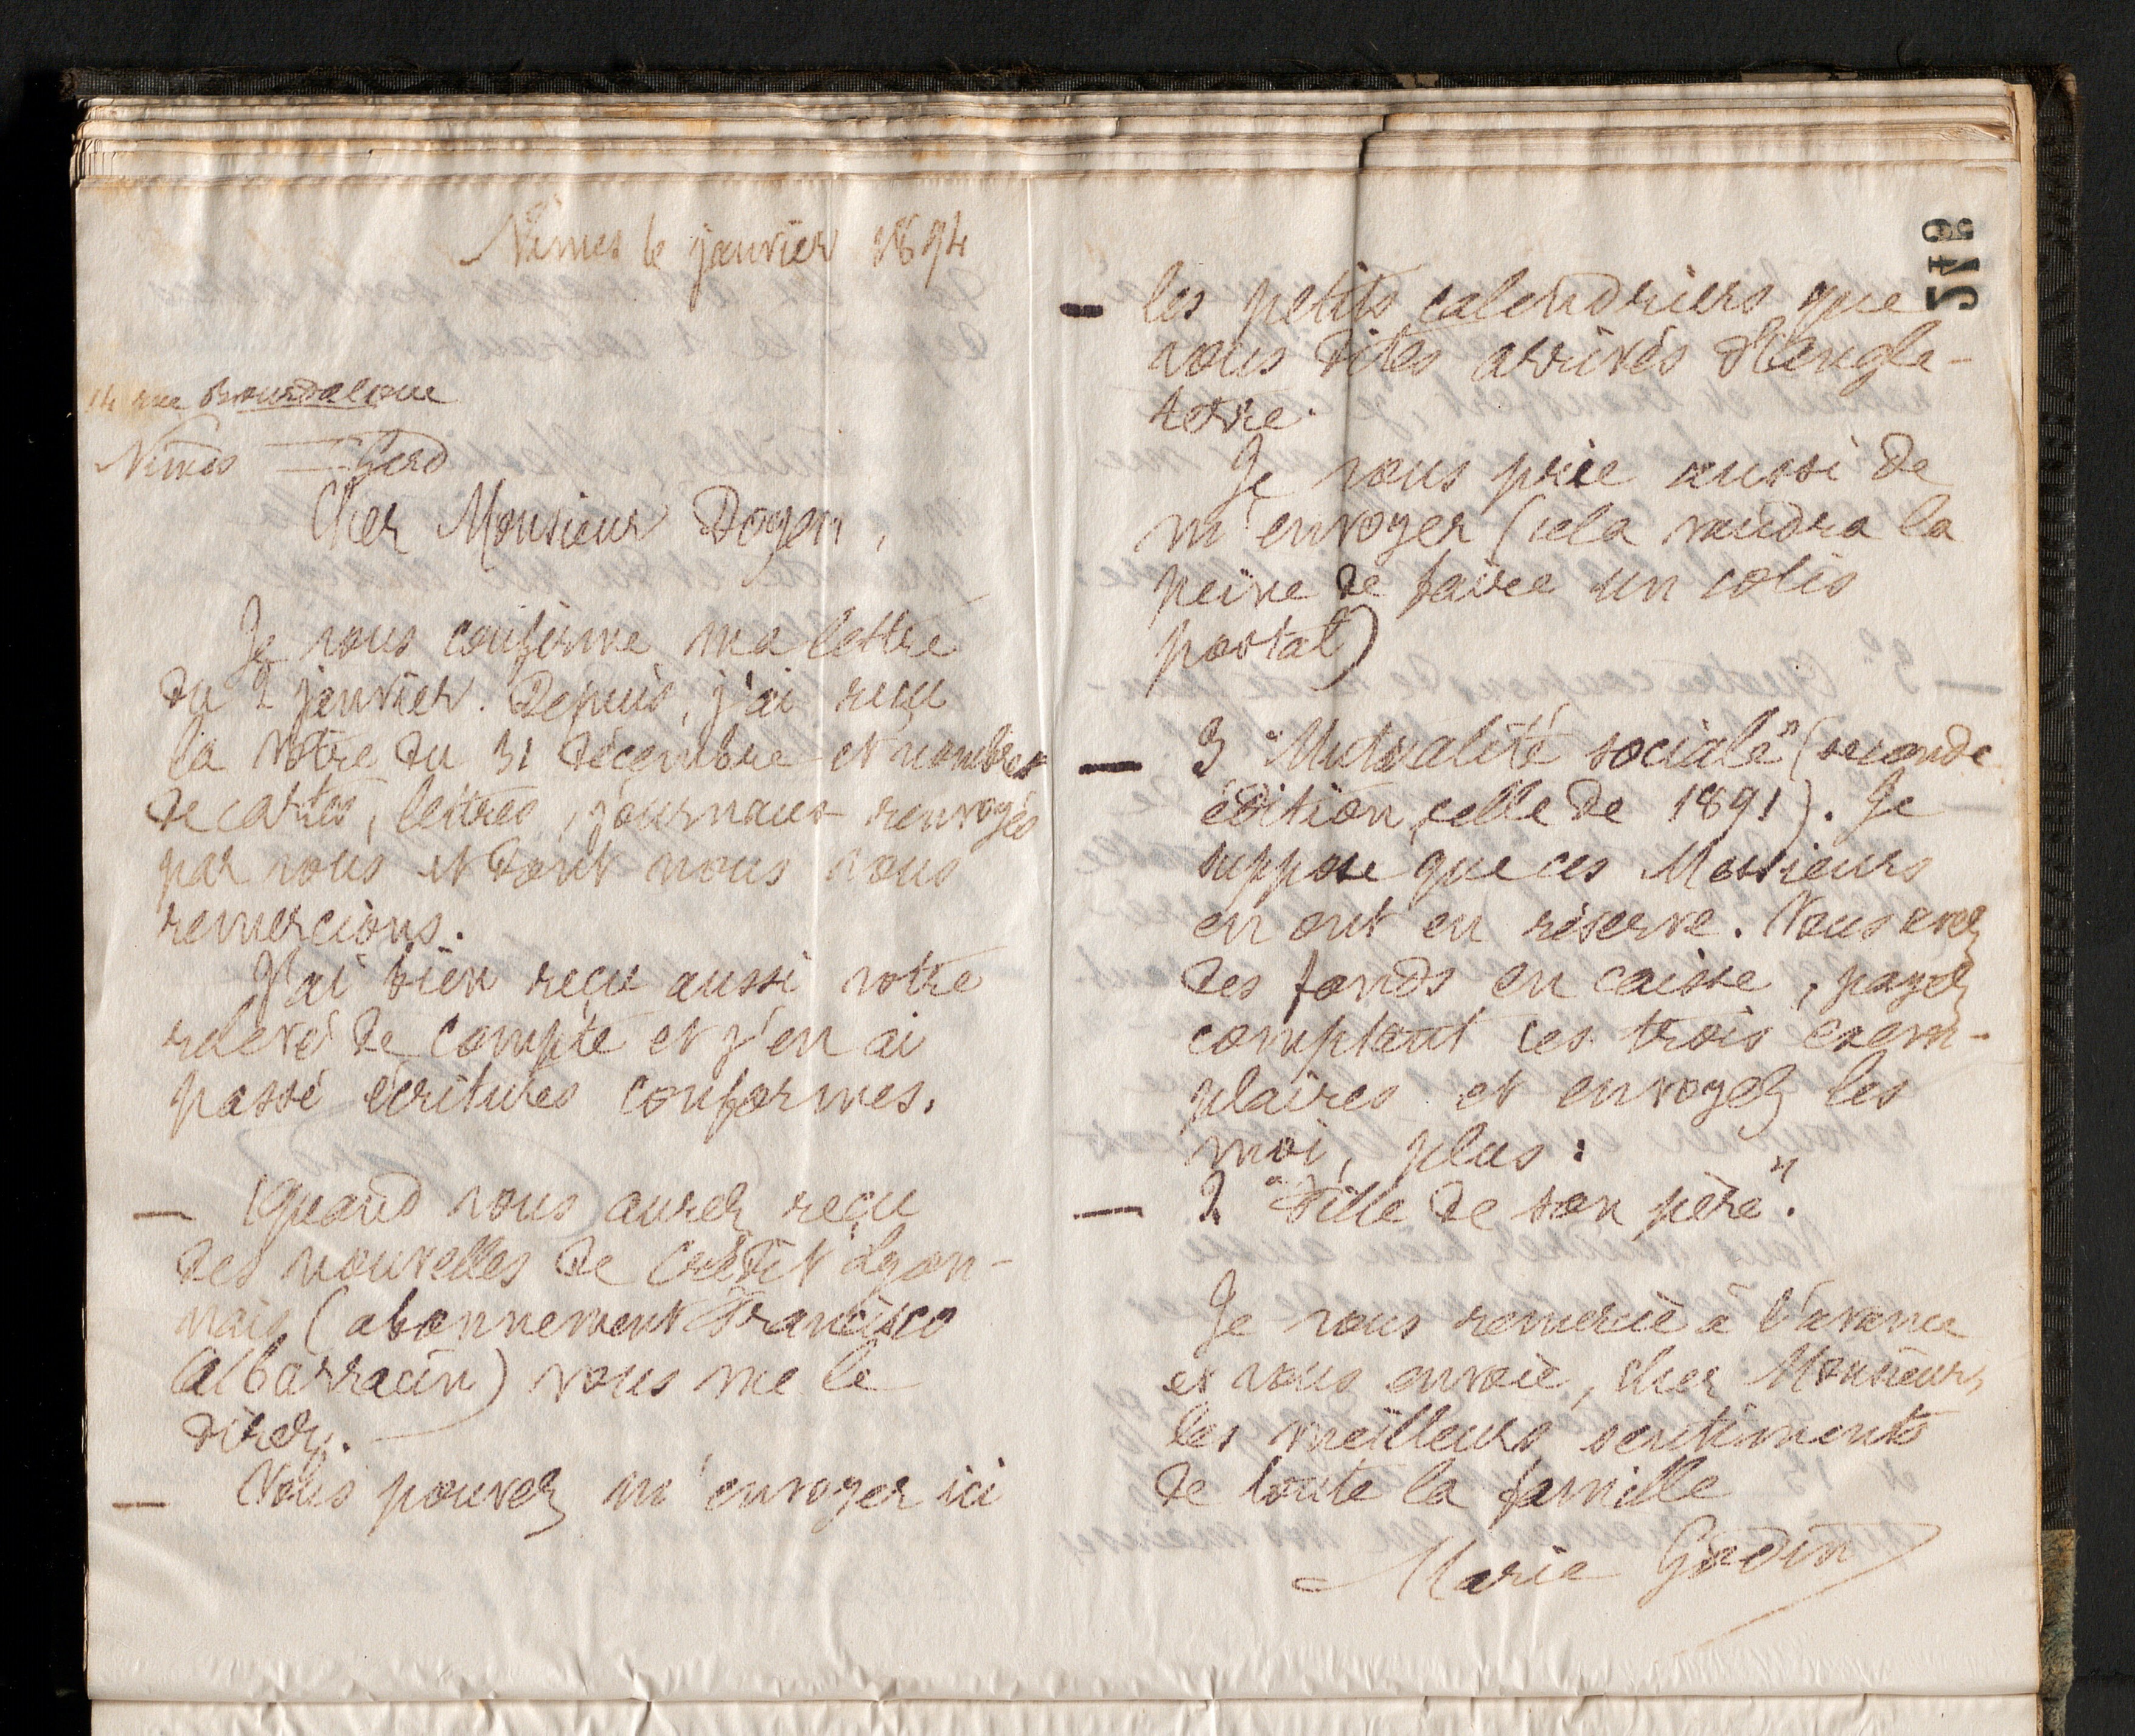 Nimes le janvier 1894
14 rue Bourdaloue
Nimes — Gard
Cher Monsieur Doyen,
Je vous confirme ma lettre
du 2 janvier. Depuis, j'ai reçu
la vôtre du 31 décembre et nombre
de cartes, lettres, journaux renvoyés
par vous et dont nous vous
remercions.
J'ai bien reçu aussi votre
relevé de compte et j'en ai
passé écritures conformes.
— Quand vous aurez reçu
des nouvelles de Crédit Lyon-
nais (abonnement Francisco
Albarracin) vous me le
direz.
— Vous pouvez m'envoyer ici
les petits calendriers que
vous dites arrivés d'Angle-
terre.
Je vous prie aussi de
m'envoyer (cela vaudra la
peine de faire un colis
postal)
— 3 "Mutualité sociale" (seconde
édition, celle de 1891). Je
suppose que ces Messieurs
en ont en réserve. Vous avez
des fonds en caisse, payez
comptant ces trois exem-
plaires et envoyez les
moi, plus :
— 2 "Fille de son père".
Je vous remercie à l'avance
et vous envoie, cher Monsieur,
les meilleurs sentiments
de toute la famille
Marie Godin